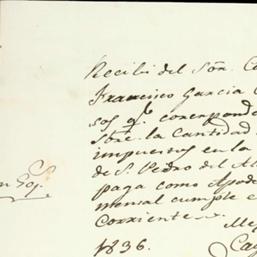 Recibi del Sõr. Co
Francisco Garcia
sos q.e corresponde
sobre la Cantidad
impuestos en la
de S. Pedro del Al
paga como Apode
mensual cumple e
Corriente
Me
1836.